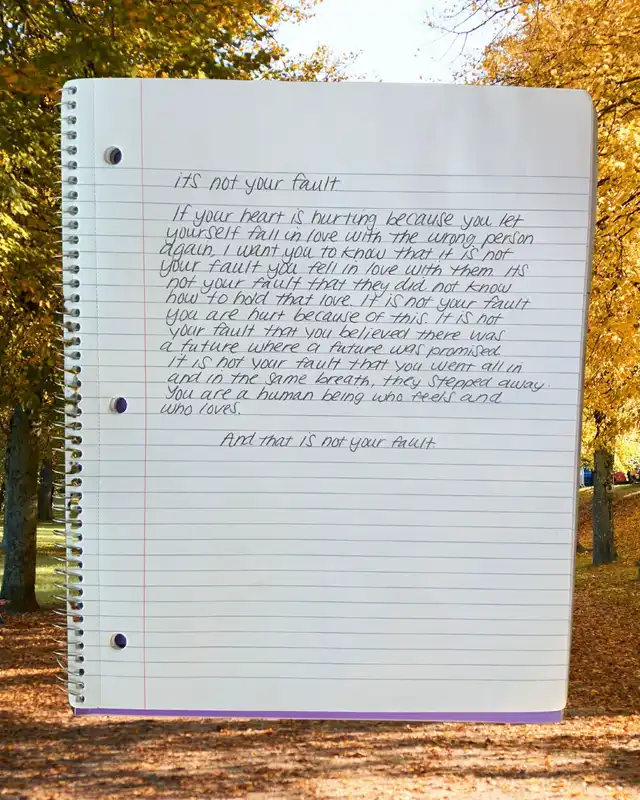 its not your fault
If your heart is hurting because you let
yourself fall in love with the wrong person
again. I want you to know that it is not
your fault you fell in love with them. Its
not your fault that they did not know
how to hold that love. It is not your fault
you are hurt because of this. It is not
your fault that you believed there was
a future where a future was promised
it is not your fault that you went all in
and in the same breath, they stepped away.
You are a human being who feels and
who loves.
And that is not your fault.